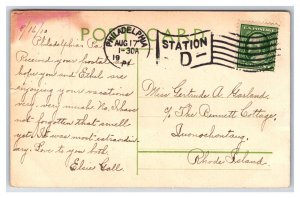 8/16/10
Philadelphia Pa.
Received your postal
hope you and Ethel are
enjoying your vacations
very much. No, I have
not forgotten that smell
yet. It was most extraordin-
ary. Love to you both,
Elsie Call.
POST CARD
PHILADELPHIA
AUG 17
1-30A
19
PA.
STATION
D
Miss Gertrude A. Garland
c/o The Bennett Cottage,
Quonochontaug,
Rhode Island